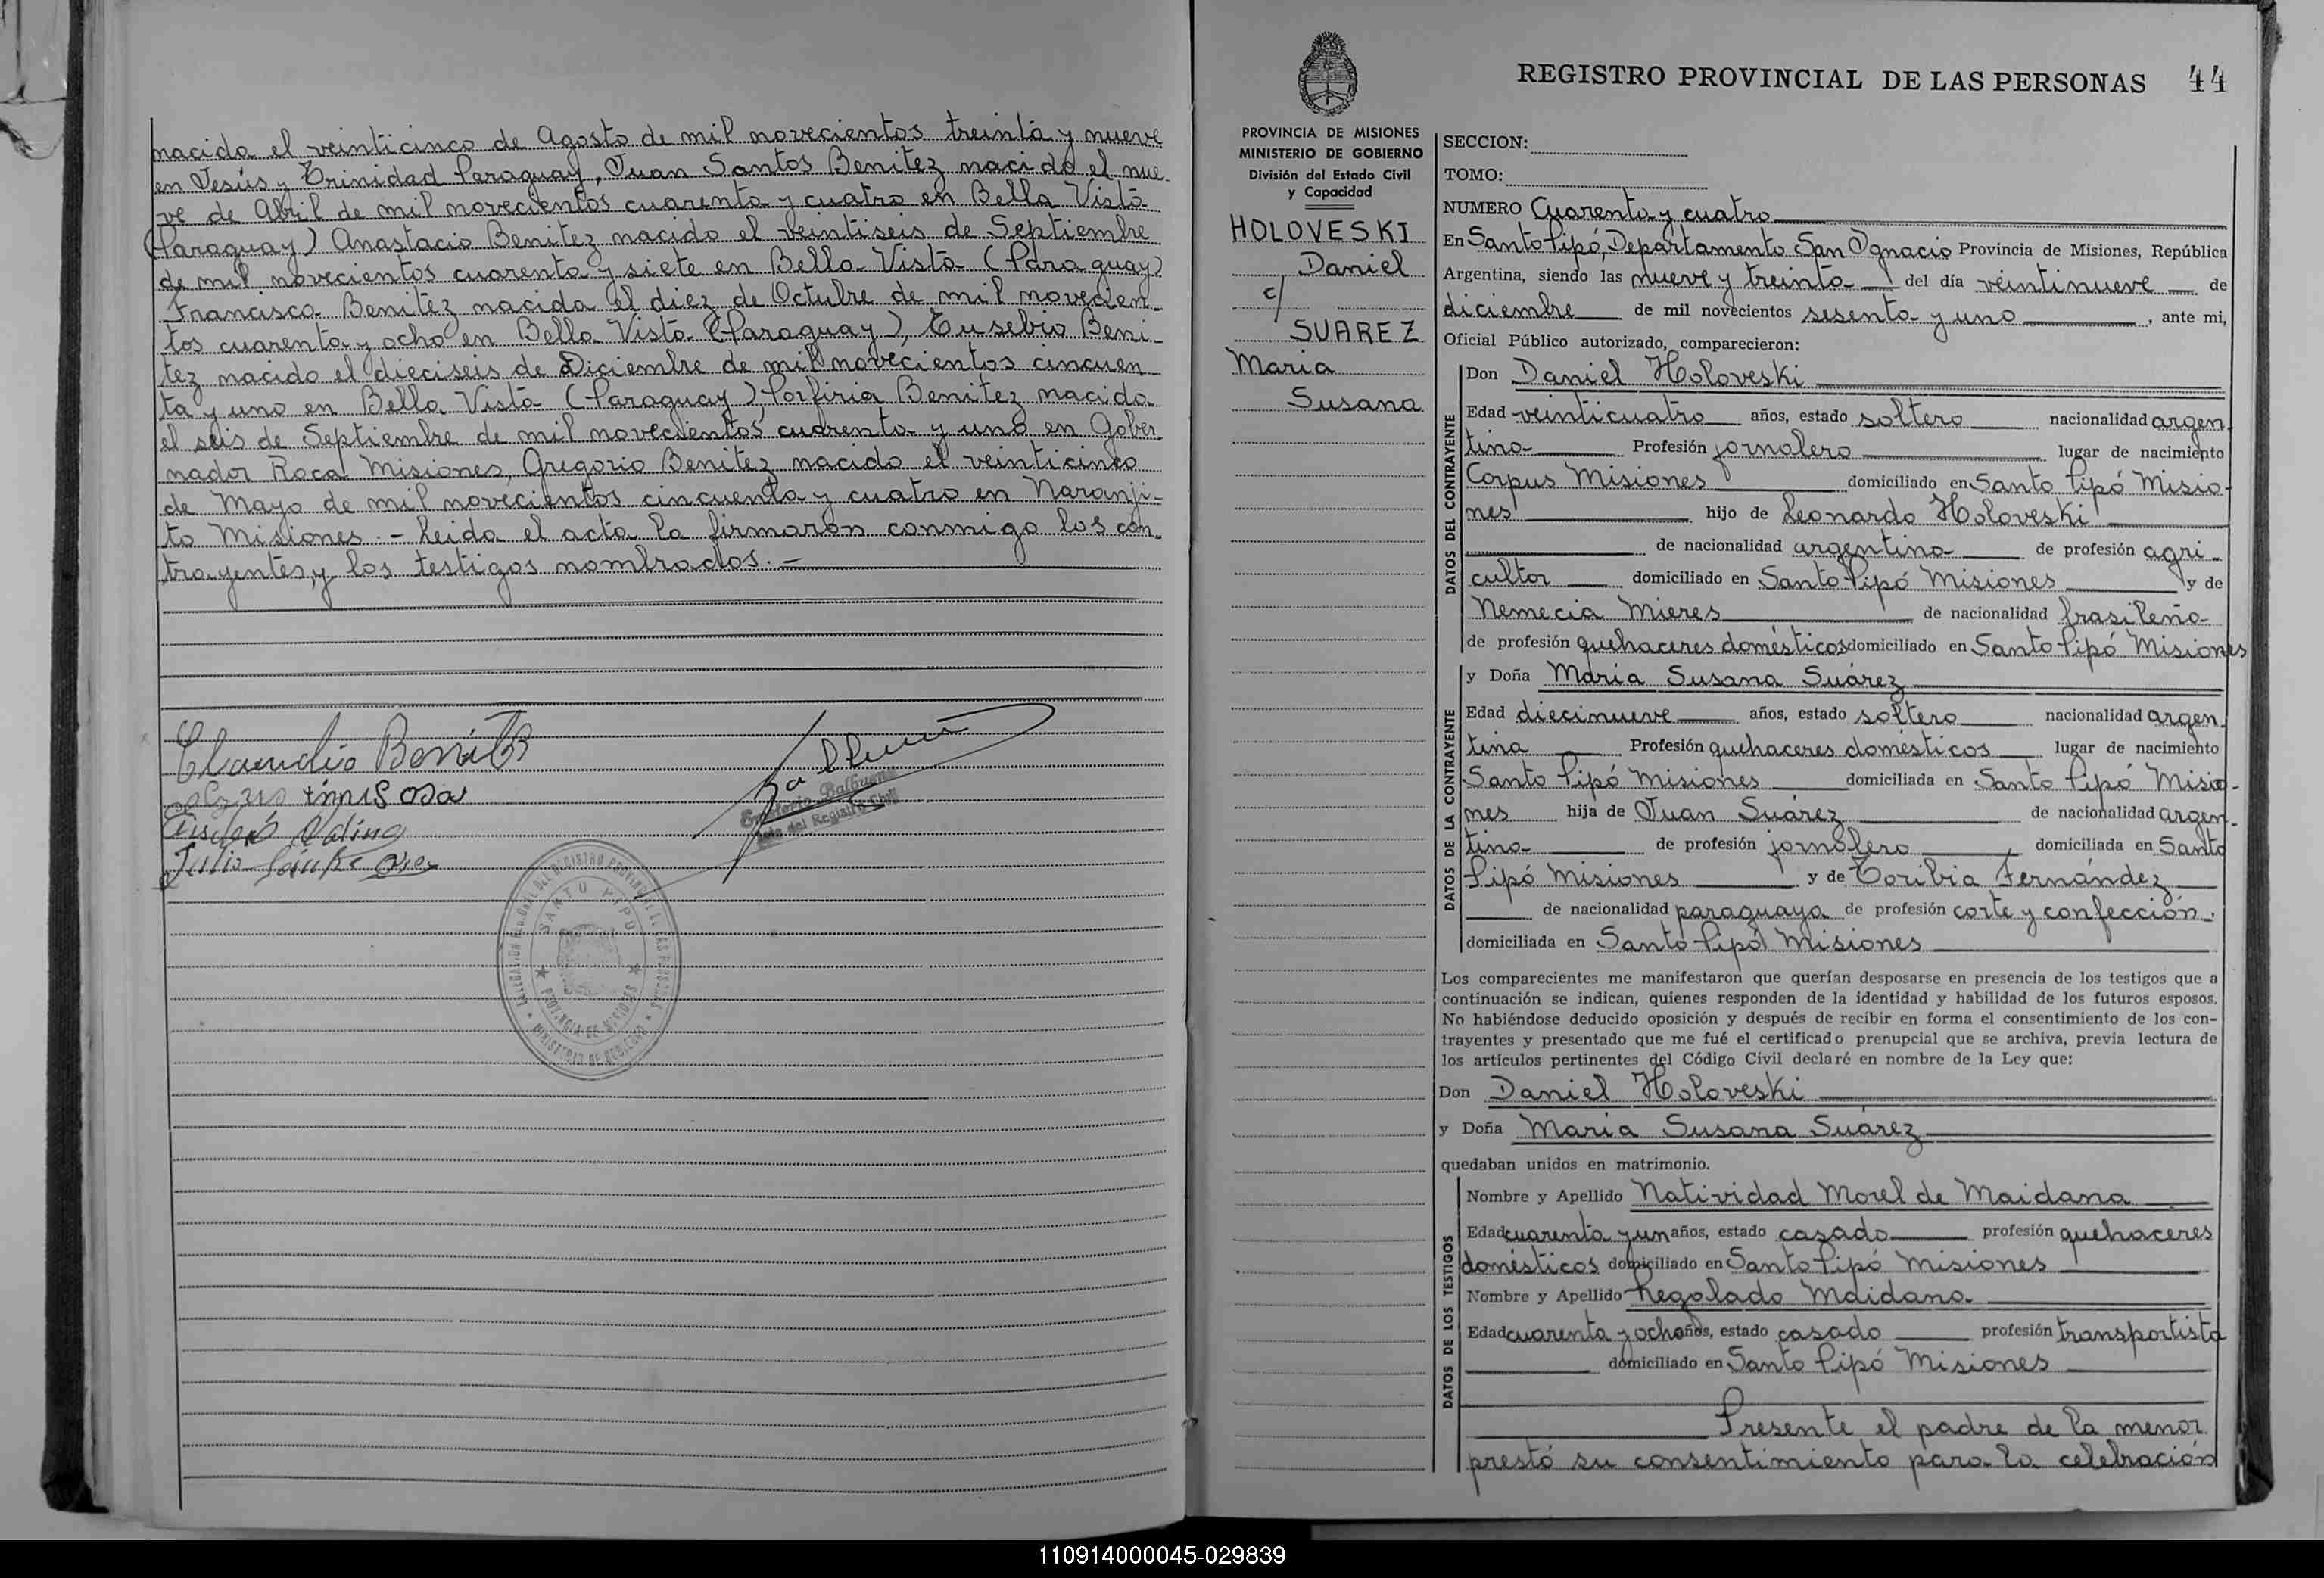 nacida el veinticinco de Agosto de mil novecientos treinta y nueve
en Jesús y Trinidad Paraguay, Juan Santos Benitez nacido el nue-
ve de Abril de mil novecientos cuarenta y cuatro en Bella Vista
(Paraguay) Anastacio Benitez nacido el veintiseis de Septiembre
de mil novecientos cuarenta y siete en Bella Vista (Paraguay)
Francisca Benitez nacida el diez de Octubre de mil novecien-
tos cuarenta y ocho en Bella Vista (Paraguay), Eusebio Beni-
tez nacido el dieciseis de Diciembre de mil novecientos cincuen-
ta y uno en Bella Vista (Paraguay), Porfiria Benitez nacida
el seis de Septiembre de mil novecientos cuarenta y uno en Gober
nador Roca Misiones, Gregorio Benitez nacido el veinticinco
de Mayo de mil novecientos cincuenta y cuatro en Naranji-
to Misiones.- Leida el acta la firmaron conmigo los con
trayentes, y los testigos nombrados.-
Claudio Benitez
Balbuena
del Registro Civil
REGISTRO PROVINCIAL DE LAS PERSONAS
SANTO PIPO
PROVINCIA DE MISIONES
MINISTERIO DE GOBIERNO
REGISTRO PROVINCIAL DE LAS PERSONAS 44
PROVINCIA DE MISIONES
MINISTERIO DE GOBIERNO
División del Estado Civil
y Capacidad
HOLOVESKI
Daniel
c/
SUAREZ
Maria
Susana
SECCION:
TOMO:
NUMERO Cuarenta y cuatro
En Santo Pipó, Departamento San Ignacio Provincia de Misiones, República
Argentina, siendo las nueve y treinta del día veintinueve de
diciembre de mil novecientos sesenta y uno, ante mi,
Oficial Público autorizado, comparecieron:
DATOS DEL CONTRAYENTE
Don Daniel Holoveski
Edad veinticuatro años, estado soltero nacionalidad argen
tina Profesión jornalero lugar de nacimiento
Corpus Misiones domiciliado en Santo Pipó Misio-
nes hijo de Leonardo Holoveski
de nacionalidad argentina de profesión agri-
cultor domiciliado en Santo Pipó Misiones y de
Nemecia Mieres de nacionalidad brasileña
de profesión quehaceres domésticos domiciliado en Santo Pipó Misiones
DATOS DE LA CONTRAYENTE
y Doña María Susana Suárez
Edad diecinueve años, estado soltera nacionalidad argen
tina Profesión quehaceres domésticos lugar de nacimiento
Santo Pipó Misiones domiciliada en Santo Pipó Misio-
nes hija de Juan Suárez de nacionalidad argen-
tina de profesión jornalero domiciliada en Santo
Pipó Misiones y de Toribia Fernández
de nacionalidad paraguaya de profesión corte y confección.
domiciliada en Santo Pipó Misiones
Los comparecientes me manifestaron que querían desposarse en presencia de los testigos que a
continuación se indican, quienes responden de la identidad y habilidad de los futuros esposos.
No habiéndose deducido oposición y después de recibir en forma el consentimiento de los con-
trayentes y presentado que me fué el certificado prenupcial que se archiva, previa lectura de
los artículos pertinentes del Código Civil declaré en nombre de la Ley que:
Don Daniel Holoveski
y Doña María Susana Suárez
quedaban unidos en matrimonio.
DATOS DE LOS TESTIGOS
Nombre y Apellido Natividad Morel de Maidana
Edad cuarenta y un años, estado casada profesión quehaceres
domésticos domiciliado en Santo Pipó Misiones
Nombre y Apellido Regolado Maidana
Edad cuarenta y ocho años, estado casado profesión transportista
domiciliado en Santo Pipó Misiones
Presente el padre de la menor
prestó su consentimiento para la celebración
110914000045-029839